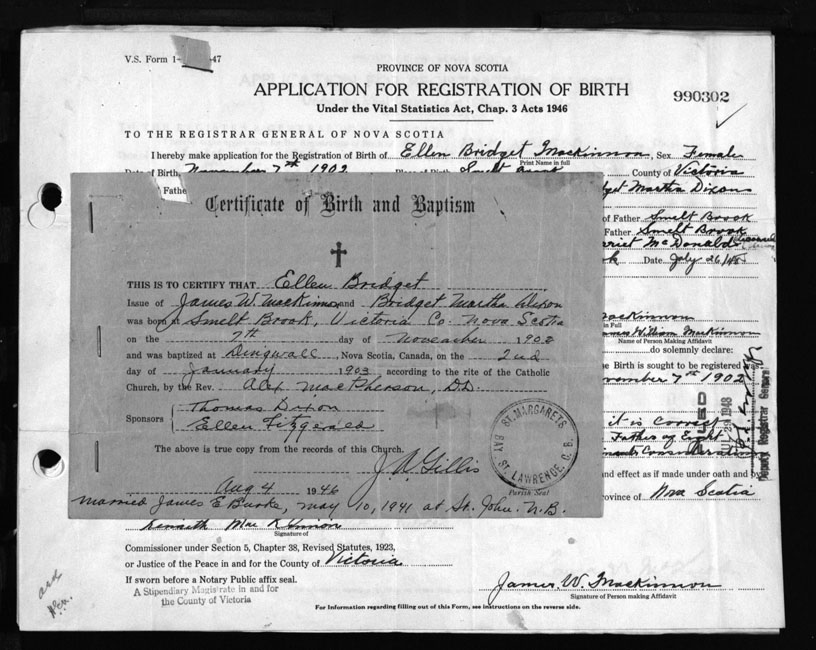 V.S. Form 1- -47
PROVINCE OF NOVA SCOTIA
APPLICATION FOR REGISTRATION OF BIRTH
990302
Under the Vital Statistics Act, Chap. 3 Acts 1946
TO THE REGISTRAR GENERAL OF NOVA SCOTIA
I hereby make application for the Registration of Birth of Ellen Bridget Mackinnon, Sex Female
Print Name in full
Date of Birth November 7th 1902 Place of Birth Smelt Brook County of Victoria
Fath
get Martha Dixon
of Father Smelt Brook
Father Smelt Brook
rriet McDonald
k Date July 26/48
Certificate of Birth and Baptism
THIS IS TO CERTIFY THAT Ellen Bridget
Issue of James W. MacKinnon and Bridget Martha Dixon
was born at Smelt Brook, Victoria Co. Nova Scotia
on the 7th day of November 1902
and was baptized at Dingwall, Nova Scotia, Canada, on the 2nd
day of January 1903 according to the rite of the Catholic
Church, by the Rev. Alex MacPherson, D.D.
Sponsors Thomas Dixon
Ellen Fitzgerald
The above is true copy from the records of this Church.
J. A. Gillis
Aug 4 1946
Parish Seal
ST. MARGARETS
BAY ST. LAWRENCE, C. B.
Married James E Burke, May 10, 1941 at St. John. N.B.
ackinnon
in Full
ames William Mackinnon
Name of Person Making Affidavit
do solemnly declare:
e Birth is sought to be registered
vember 7th 1902
it is Correct
Father of Eight
Consideration
and effect as if made under oath and by
rovince of Nova Scotia
1948
Deputy Registrar General
Kenneth Mac Kinnon
Signature of
Commissioner under Section 5, Chapter 38, Revised Statutes, 1923,
or Justice of the Peace in and for the County of Victoria
If sworn before a Notary Public affix seal.
A Stipendiary Magistrate in and for
the County of Victoria
James W. Mackinnon
Signature of Person making Affidavit
For Information regarding filling out of this Form, see instructions on the reverse side.